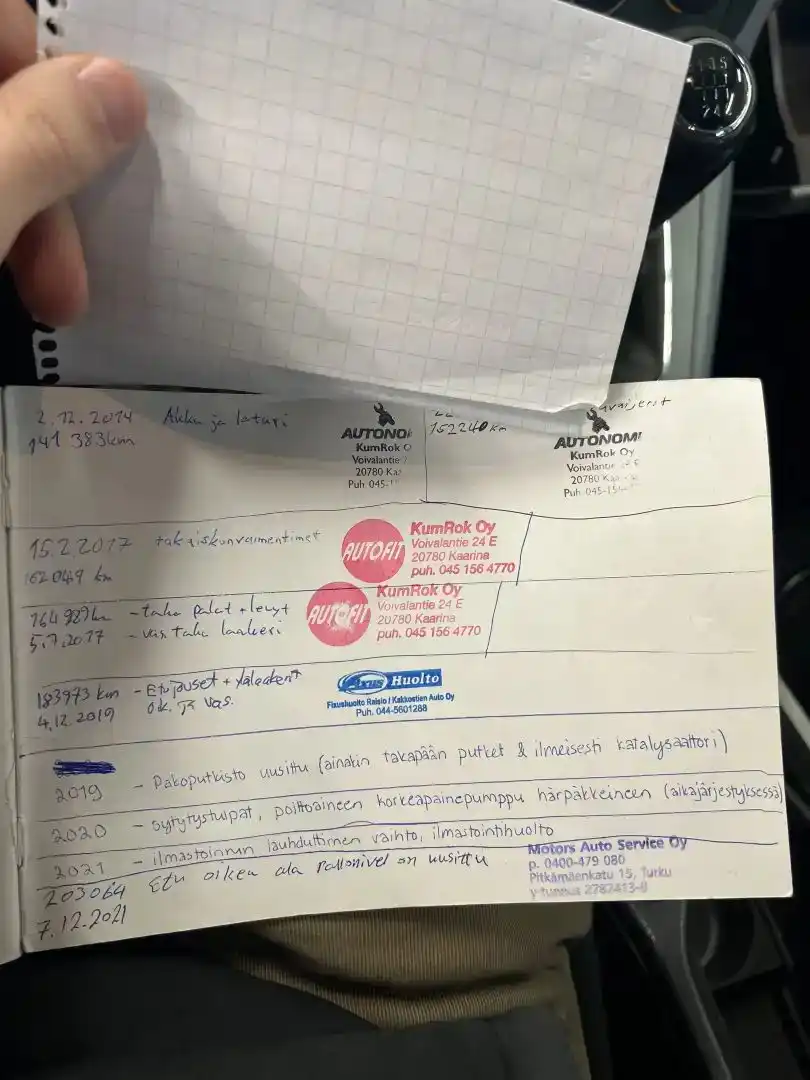 1 3 5
2 4
2.12.2014 Akku ja laturi
141 383km
AUTONO
KumRok O
Voivalantie
20780 Ka
Puh. 045-1
152240 km
AUTONOM
KumRok Oy
Voivalantie
20780 Ka
Puh. 045-15
15.2.2017 takaiskunvaimentimet
162049 km
AUTOFIT
KumRok Oy
Voivalantie 24 E
20780 Kaarina
puh. 045 156 4770
164989km - taka palat + levyt
5.7.2017 - vas taka laakeri
AUTOFIT
KumRok Oy
Voivalantie 24 E
20780 Kaarina
puh. 045 156 4770
183973 km - Etujouset + yläläakerit
4.12.2019 oik. ja vas.
Huolto
Fixushuolto Raisio / Kakkostien Auto Oy
Puh. 044-5601288
2019 - Pakoputkisto uusittu (ainakin takapään putket & ilmeisesti katalysaattori)
2020 - sytytystulpat, polttoaineen korkeapainepumppu härpäkkeineen (aikajärjestyksessä)
2021 - ilmastoinnin lauhduttimen vaihto, ilmastointihuolto
203064 Etu oikea ala pallonivel on uusittu
7.12.2021
Motors Auto Service Oy
p. 0400-479 080
Pitkämäenkatu 15, Turku
y-tunnus 2782413-8